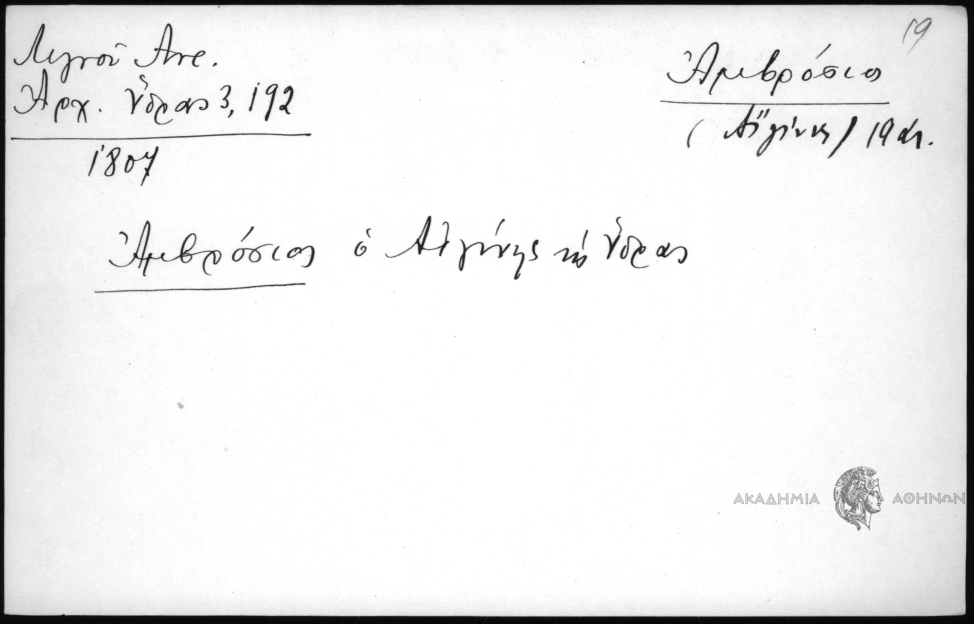 19
Λιγνοῦ Αντ.
Ἀρχ. Ὕδρας 3, 192
1807
Ἀμβρόσιος
(Αἴγίνης) 19 αι.
Ἀμβρόσιος ὁ Αἰγίνης κς Ὕδρας
ΑΚΑΔΗΜΙΑ ΑΘΗΝΩΝ